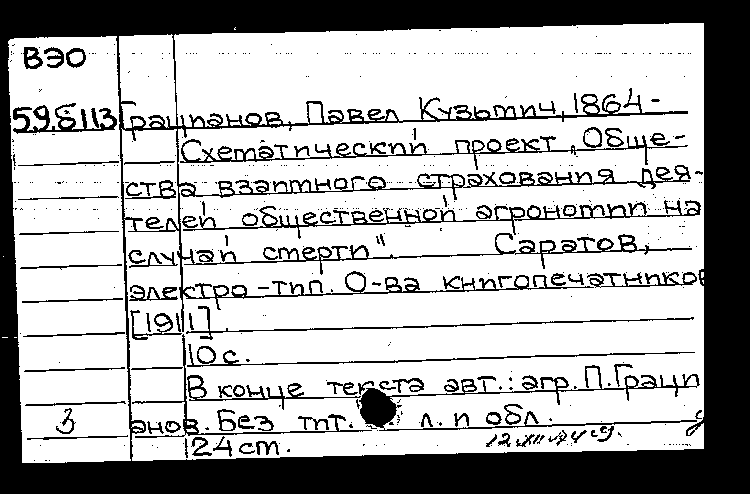 ВЭО
59.8113 Грацианов, Павел Кузьмич, 1864-
Схематический проект „Обще-
ства взаимного страхования дея-
телей общественной агрономии на
случай смерти". Саратов,
электро-тип. О-ва книгопечатников
[1911].
10 с.
В конце текста авт.: агр. П. Граци
анов. Без тит. л. и обл.
3
24 см.